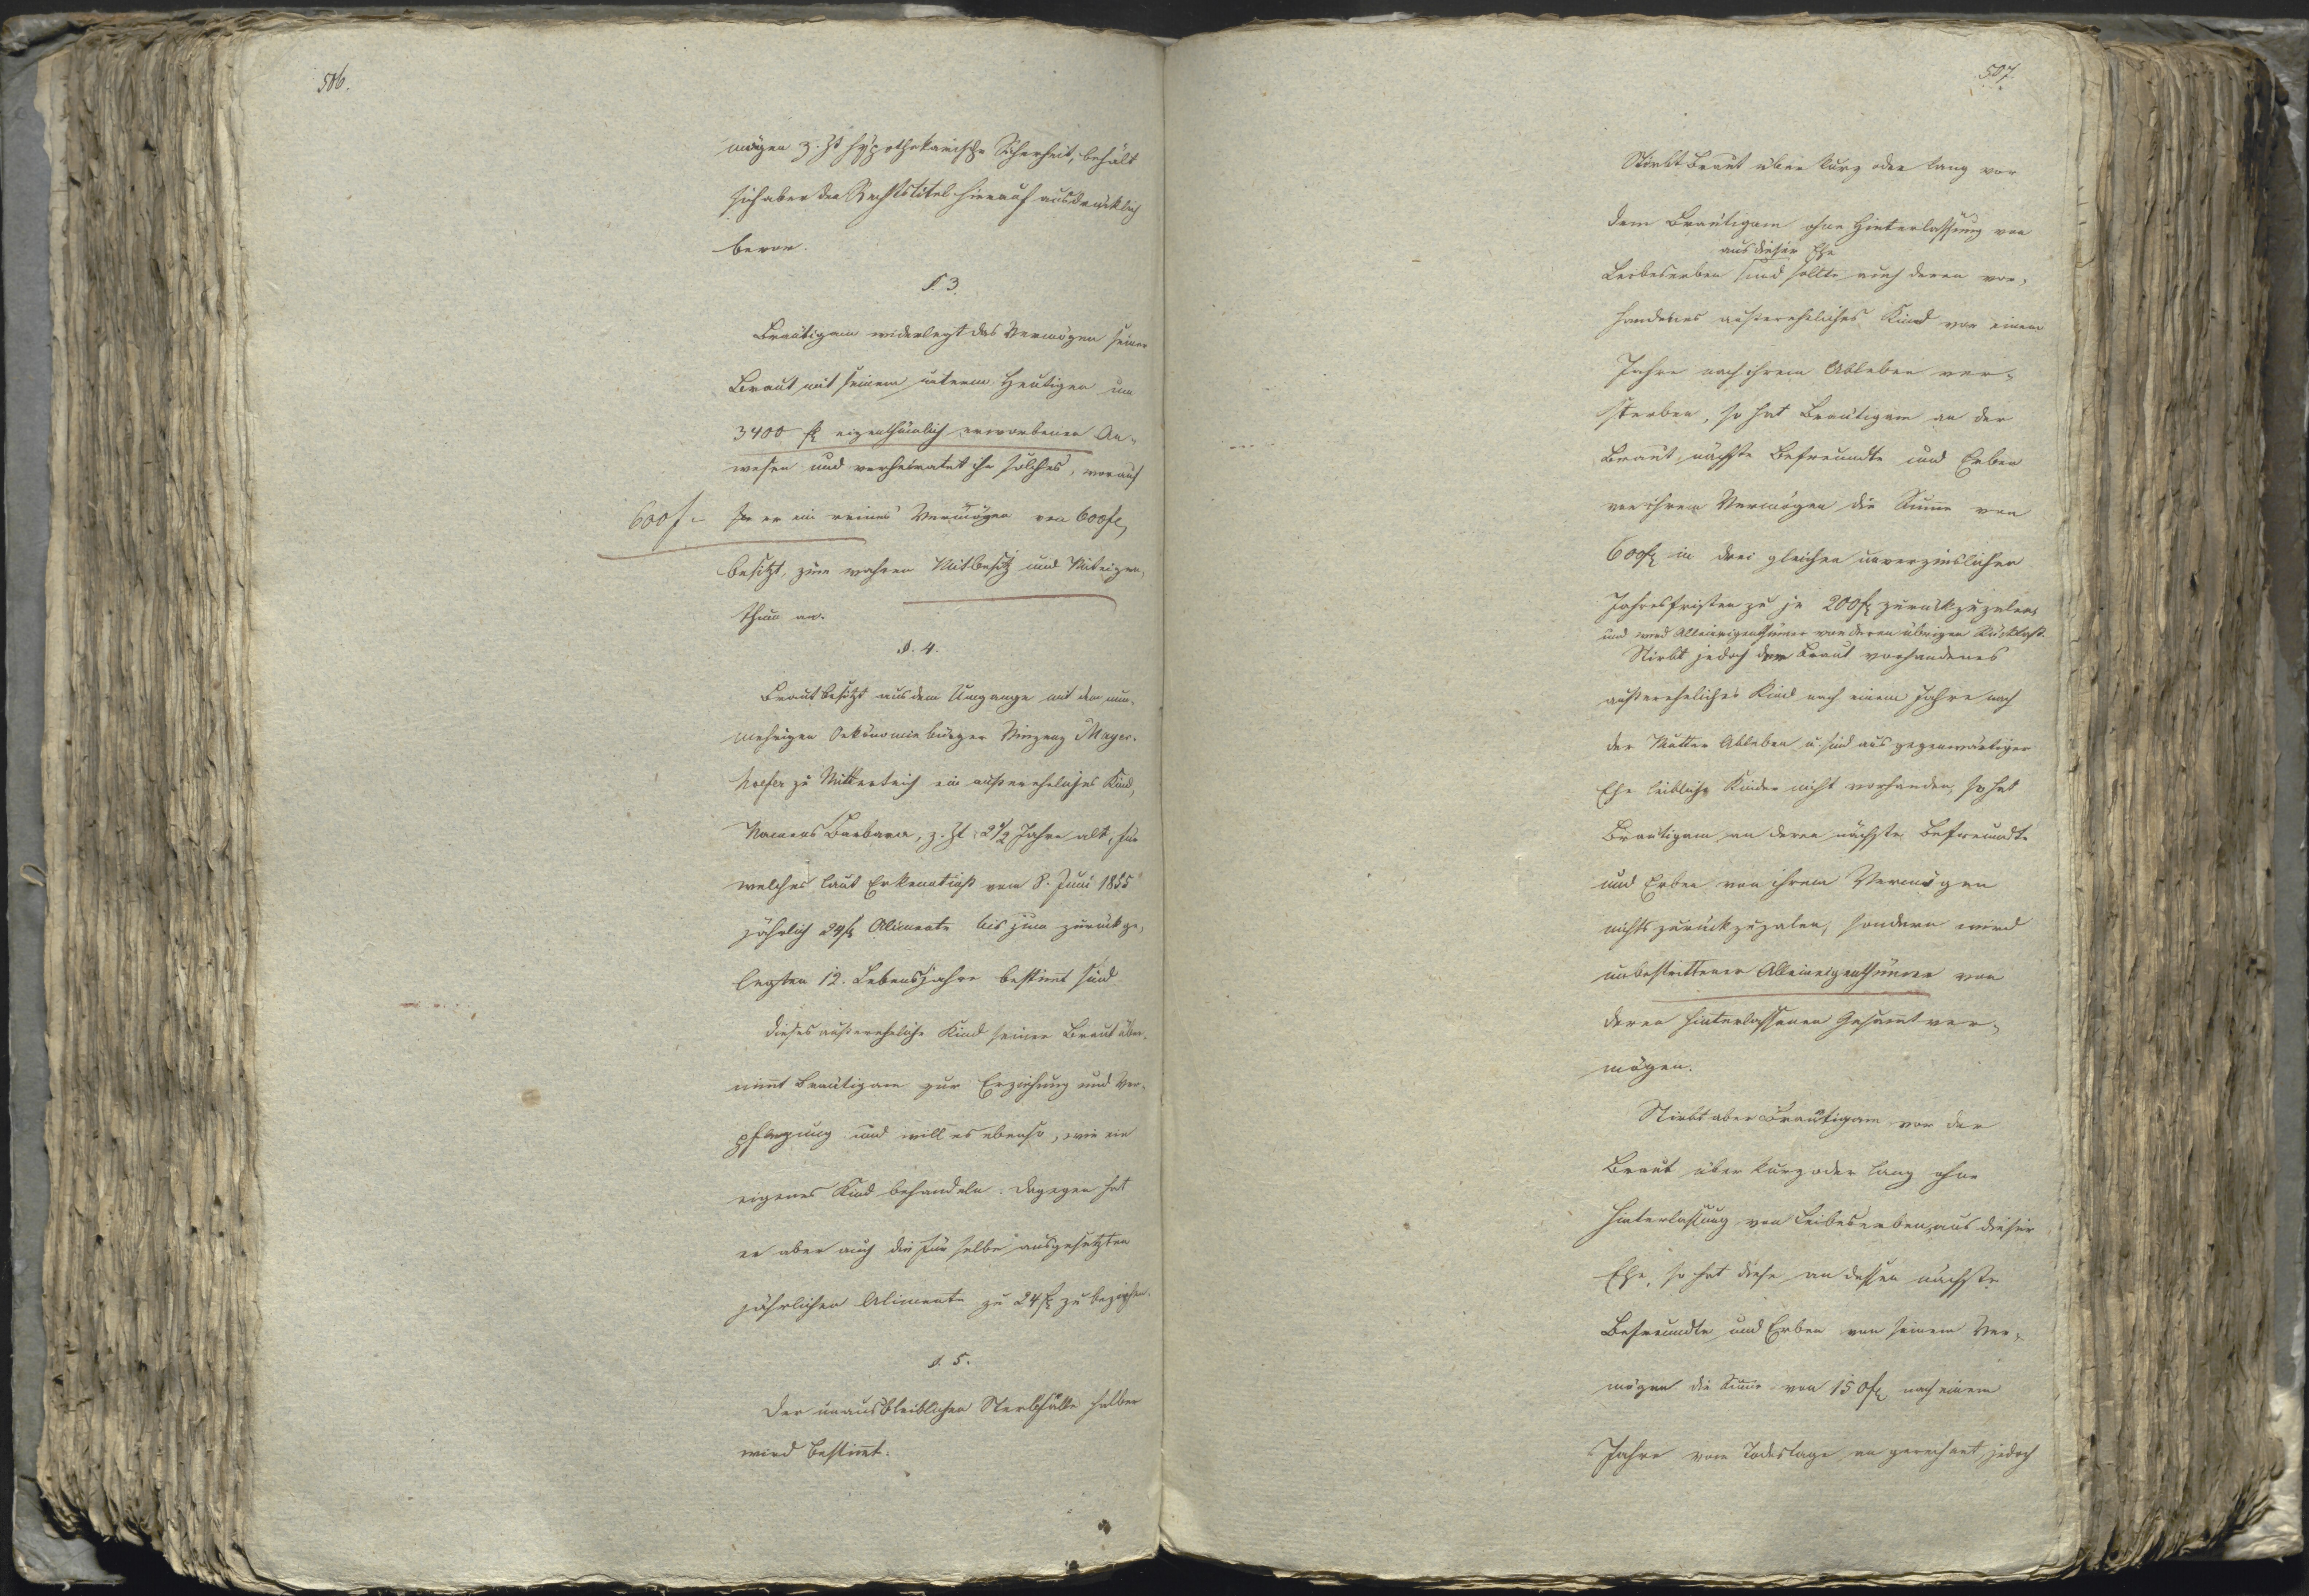 506.
mögen z. Zt hypothekarische Sicherheit, behält
sich aber den Rechtstitel hierauf ausdrücklich
bevor.
§. 3.
Bräutigam widerlegt das Vermögen seiner
Braut mit seinem unterm Heutigen um
3400 fl eigenthümlich erworbenen An-
wesen und verheirathet ihr solches, worauf
600 f.-
er ein reines Vermögen von 600 fl,
besitzt, zum wahren Mitbesitz und Miteigen-
thum an.
§. 4.
Braut besitzt aus dem Umgange mit dem nun-
mehrigen Oekonomiebürger Vinzenz Mayer-
hoefer zu Mitterteich ein außereheliches Kind,
Namens Barbara, z. Zt 2 1/2 Jahre alt, für
welches laut Erkenntniß vom 8. Juni 1855
jährlich 24 fl Alimente bis zum zurückge-
legten 12. Lebensjahre bestimt sind.
Dieses außereheliche Kind seiner Braut über-
nimt Bräutigam zur Erziehung und Ver-
pflegung und will es ebenso, wie ein
eigenes Kind behandeln. Dagegen hat
er aber auch die für selbe ausgesetzten
jährlichen Alimente zu 24 fl zu beziehen.
§. 5.
Der unausbleiblichen Sterbfälle halber
wird bestimt:
507.
Stirbt Braut über kurz oder lang vor
dem Bräutigam ohne Hinterlassung von
aus dieser Ehe
Leibeserben und sollte auch deren vor-
handenes außereheliches Kind vor einem
Jahre nach ihrem Ableben ver-
sterben, so hat Bräutigam an der
Braut nächste Befreundte und Erben
von ihrem Vermögen die Sume von
600 fl in drei gleichen unverzinslichen
Jahresfristen zu je 200 fl zurückzuzalen
und wird Alleineigenthümer von deren übrigen Rücklaß.
Stirbt jedoch der Braut vorhandenes
außereheliches Kind nach einem Jahre nach
der Mutter Ableben u. sind aus gegenwärtiger
Ehe leibliche Kinder nicht vorhanden, so hat
Bräutigam an deren nächste Befreundte
und Erben von ihrem Vermögen
nichts zurückzuzalen, sondern wird
unbestrittener Alleineigenthümer von
deren hinterlassenen Gesamtver-
mögen.
Stirbt aber Bräutigam vor der
Braut über kurz oder lang ohne
Hinterlassung von Leibeserben aus dieser
Ehe, so hat diese an dessen nächste
Befreundte und Erben von seinem Ver-
mögen die Sume von 150 fl nach einem
Jahre vom Todestage an gerechnet jedoch